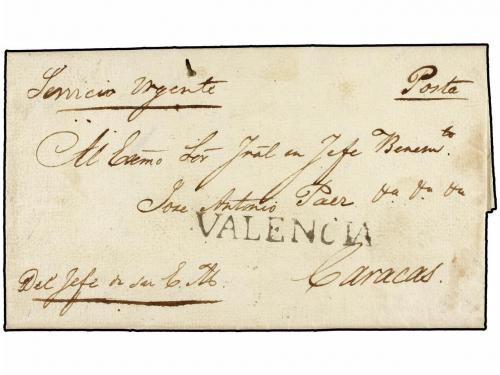 Servicio Urgente
Posta
Al Exmo Sor Jral en Jefe Benemto
Jose Antonio Paez &a &a &a
VALENCIA
Caracas.
Del Jefe de su E. M.